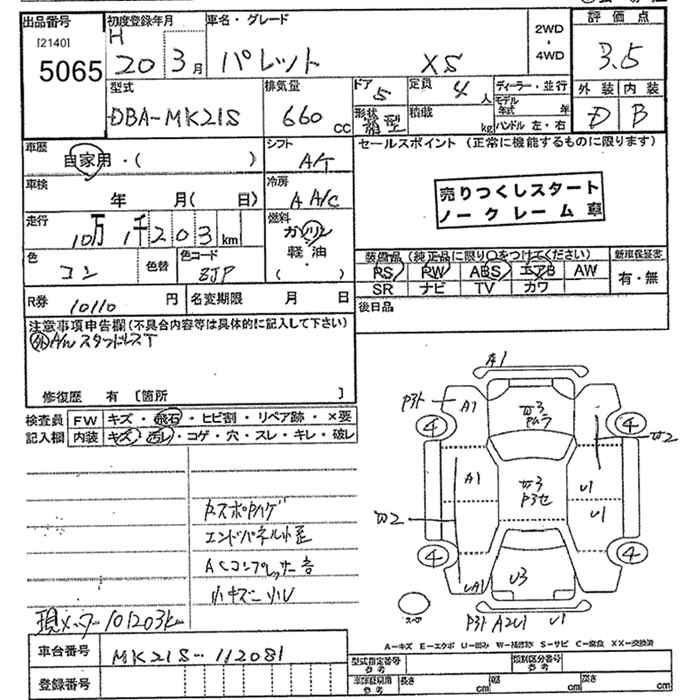 出品番号 初度登録年月 車名・グレード 2WD・4WD 評価点
[2140] H
5065 20 3月 パレット XS 3.5
型式 排気量 ドア 定員 ディーラー・並行 外装 内装
DBA-MK21S 660 CC 5 4人 モデル年式 年 D B
形状 箱型 積載 kg ハンドル 左・右
車歴 シフト セールスポイント (正常に機能するものに限ります)
自家用・( ) A/T
車検 冷房
年 月( 日) A A/C 売りつくしスタート
ノークレーム車
走行 燃料
10万1千203km ガソリン
軽油
( )
色 色替 色コード 装備品 (純正品に限り○をつけてください) 新車保証書
コン ZJP PS PW ABS エアB AW 有・無
SR ナビ TV カワ
R券 10110円 名変期限 月 日 後日品
注意事項申告欄(不具合内容等は具体的に記入して下さい)
外 A/W スタッドレスT
修復歴 有 [箇所 ]
検査員 FW キズ・飛石・ヒビ割・リペア跡・×要
記入欄 内装 キズ・汚レ・コゲ・穴・スレ・キレ・破レ
エンドパネル小歪
ACコンプレッサー音
小キズ小U
現メーター101203km
車台番号 MK21S-112081
登録番号
A1
A1
W3
W2
④
④
A1
W3
U1
U1
W2
④
④
UA1
U3
A2U1 U1
A=キズ E=エクボ U=凹み W=補修跡 S=サビ C=腐食 XX=交換済
型式指定番号 参考 類別区分番号 参考
車体寸法 参考 長さ cm 幅 cm 高さ cm